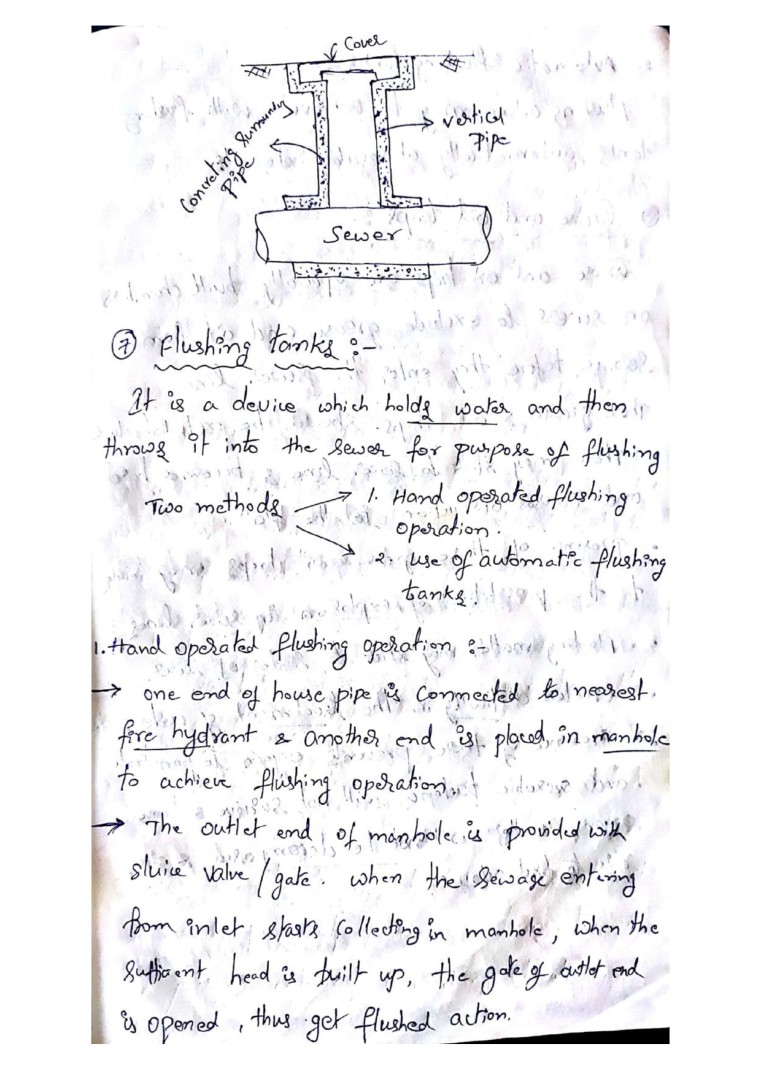 Cover
Concreting surrounding pipe
vertical
pipe
Sewer
⑦ Flushing tanks :-
It is a device which holds water and then
throws it into the sewer for purpose of flushing
Two methods → 1. Hand operated flushing
operation.
→ 2. use of automatic flushing
tanks.
1. Hand operated flushing operation :-
→ one end of house pipe is connected to nearest
fire hydrant & another end is placed in manhole
to achieve flushing operation.
→ The outlet end of manhole is provided with
sluice valve / gate. when the sewage entering
from inlet starts collecting in manhole, when the
sufficent head is built up, the gate of outlet end
is opened, thus get flushed action.